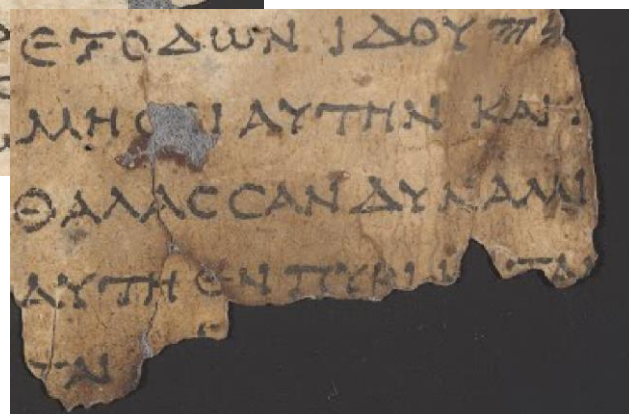 ΕΞΟΔΩΝ ΙΔΟΥ
ΑΥΤΗΝ ΚΑΙ
ΘΑΛΑϹϹΑΝ ΔΥΝΑΜΙΝ
ΑΥΤΗ ΕΝ ΠΥΡΙ
ΤΑΙ